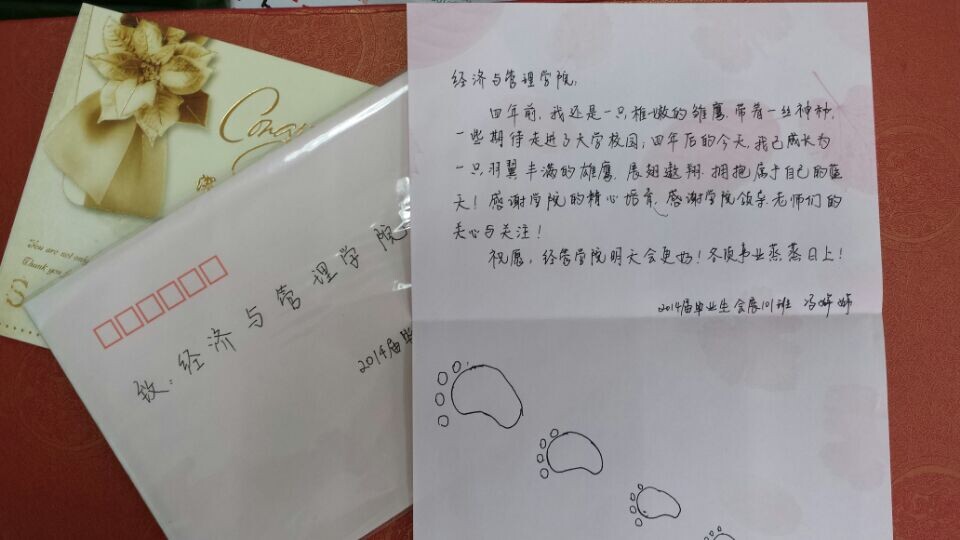 Cong
You are not only
Thank you
S
致：经济与管理学院
2014届毕
经济与管理学院：
四年前，我还是一只稚嫩的雏鹰，带着一丝神秘，
一些期待走进了大学校园；四年后的今天，我已成长为
一只羽翼丰满的雄鹰，展翅遨翔，拥抱属于自己的蓝
天！感谢学院的精心培育，感谢学院领导老师们的
关心与关注！
祝愿，经管学院明天会更好！各项事业蒸蒸日上！
2014届毕业生会展101班 冯婷婷